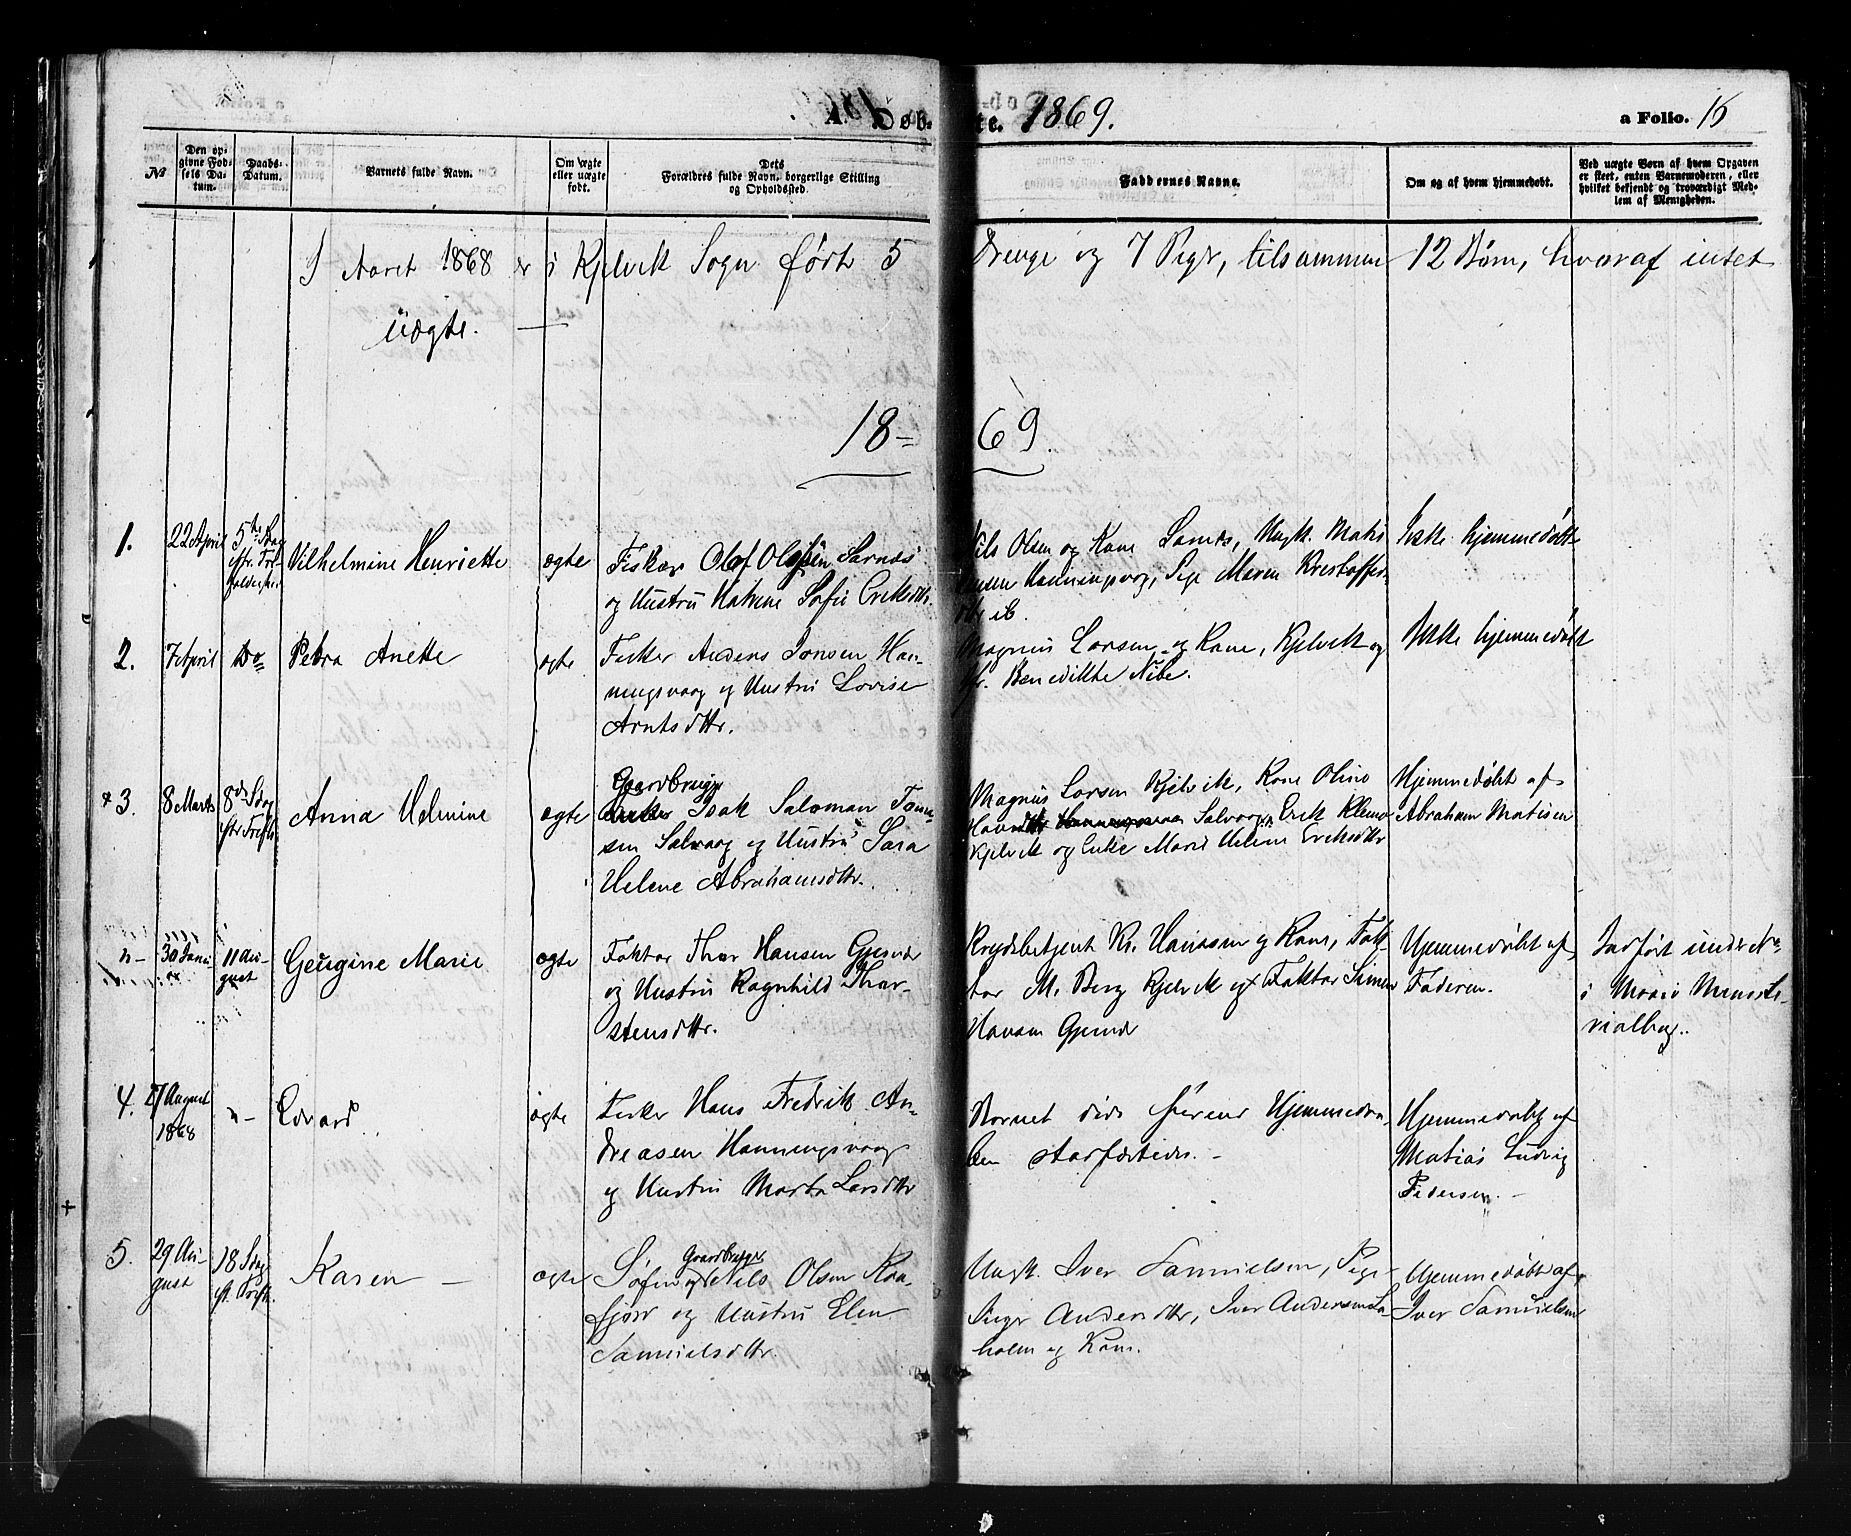 Døb- te. 1869. a Folio. 16
No
Den op-
givne Fød-
sels Da-
tum.
Daabs-
Datum.
Barnets fulde Navn.
Om ægte
eller uægte
født.
Dets
Forældres fulde Navn, borgerlige Stilling
og Opholdssted.
Faddernes Navne.
Om og af hvem hjemmedøbt.
Ved uægte Børn af hvem Opgaven
er skeet, enten Barnemoderen, eller
hvilket bekjendt og troværdigt Med-
lem af Menigheden.
I Aaret 1868 er i Kjelvik Sogn født 5 Drenge og 7 Piger, tilsammen 12 Børn, hvoraf intet
uægte.
18 = 69.
1.
22 April
5te Sdag
eftr. Tre-
Vilhelmine Henriette
ægte
Fisker Olaf Olsen Sarnæs
og Hustru Sofie Eriksdttr.
Nils Olsen og Kone Sarnæs, Ungk. Matis
Jensen Honningsvaag, Pige Maren Kristoffers-
dttr ib.
Ikke hjemmedøbt
2.
7 April
Do
Petra Anette
ægte
Fisker Anders Jonsen Hon-
ningsvaag og Hustru Lovise
Arntsdttr.
Magnus Larsen og Kone, Kjelvik og
Benedikte Nibe.
Ikke hjemmedøbt
3.
8 Marts
8de Sdag
eftr Trefh.
Anna Helmine
ægte
Gaardbruger
Isak Salomon Tome-
sen Salvaag og Hustru Sara
Helene Abrahamsdttr.
Magnus Larsen Kjelvik, Kone Oline
Salvaag, Erik Klemo
Kjelvik og Enke Marit Helene Eriksdttr
Hjemmedøbt af
Abraham Matisen
n-
30 Janu-
ar
11 Au-
gust
Georgine Marie
ægte
Faktor Thor Hansen Gjesvær
og Hustru Ragnhild Thor-
stensdttr.
Krydsbetjent Kr. Hansen og Kone, Fak-
tor M. Berg Kjelvik og Faktor Simen
Hansen Gjesvær
Hjemmedøbt af
Faderen.
Indført under No
i Maasø Ministe-
rialbog.
4.
21 August
1868
n-
Edvard
ægte
Fisker Hans Fredrik An-
dreasen Honningsvaag
og Hustru Marta Larsdttr
Barnet døde førend Hjemmedaa-
ben stadfæstedes. -
Hjemmedøbt af
Matias Ludvig
Pedersen. -
5.
29 Au-
gust
18 Sdag
ft. Trefh.
Karen -
ægte
Gaardbruger
Søfin og Nils Olsen Kaa-
fjord og Hustru Elen
Samuelsdttr.
Ungk. Iver Samuelsen, Pige
Inger Andersdttr, Iver Andersen La-
holm og Kone.
Hjemmedøbt af
Iver Samuelsen